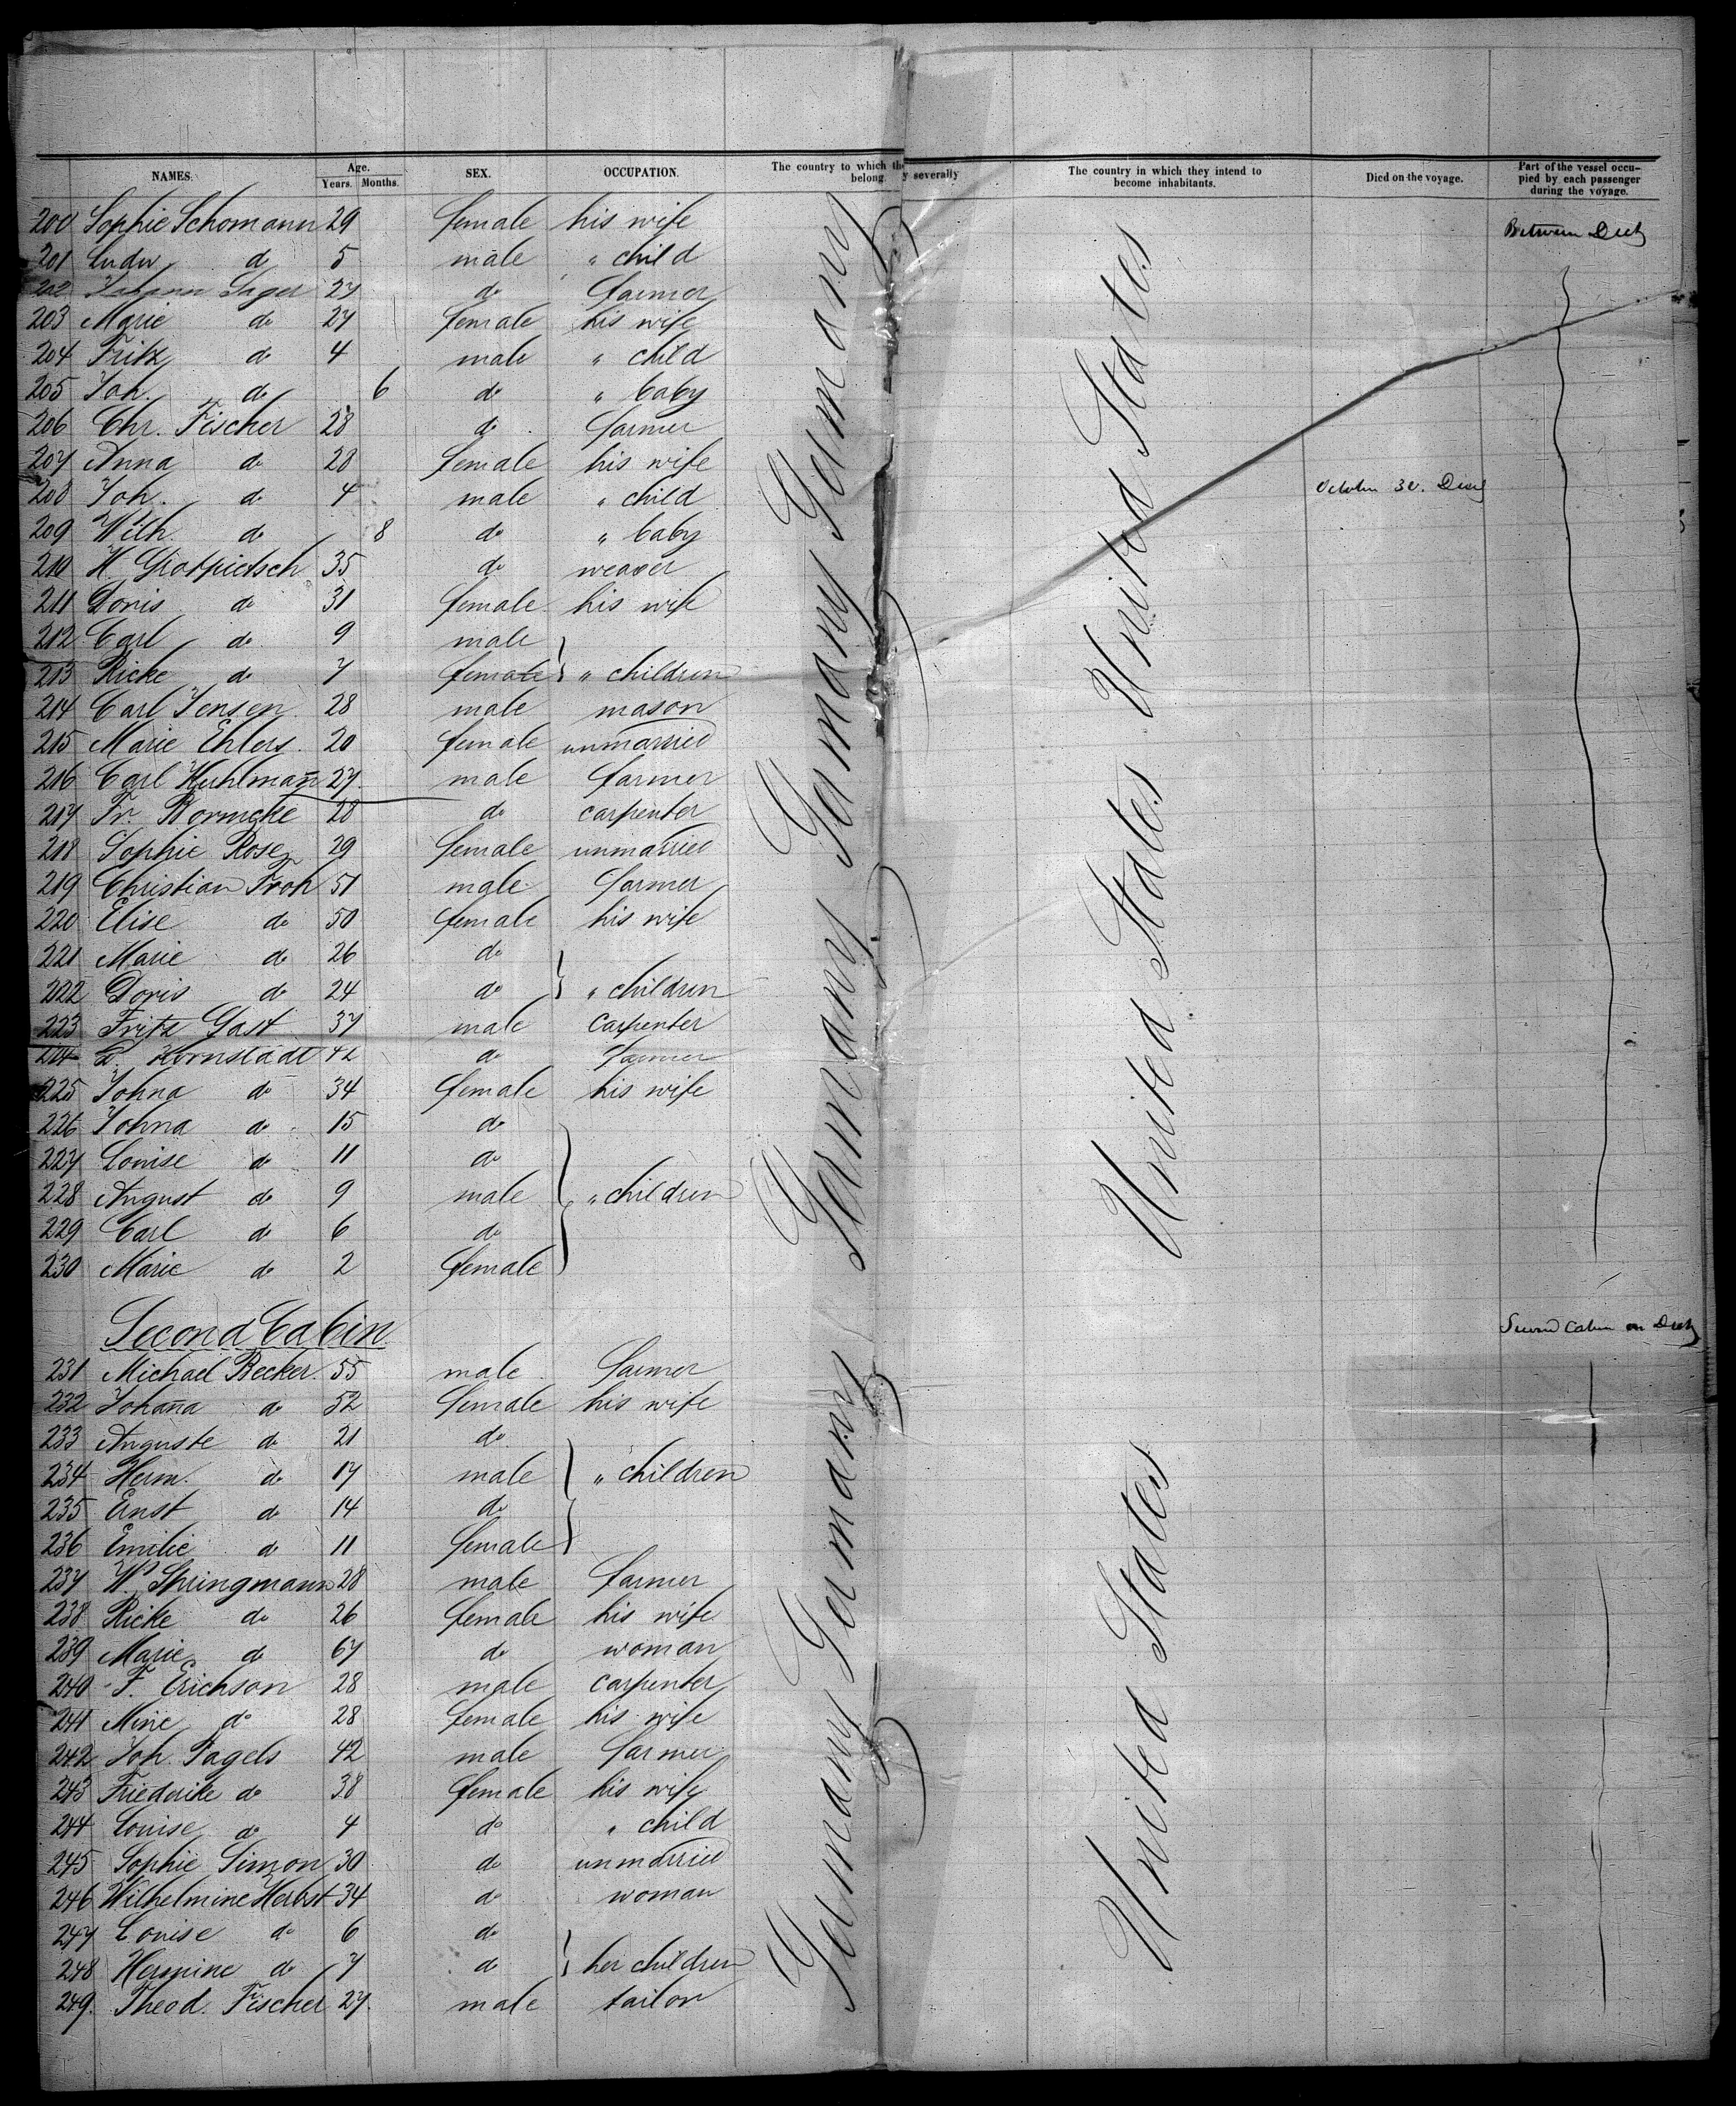 NAMES. Age. Years. Months. SEX. OCCUPATION. The country to which they severally belong. The country in which they intend to become inhabitants. Died on the voyage. Part of the vessel occupied by each passenger during the voyage.
200 Sophie Schomann 29 female his wife Between Deck
201 Ludw. do 5 male " child
202 Johann Jager 27 do farmer
203 Marie do 27 female his wife
204 Fritz do 4 male " child
205 Joh. do 6 do " baby
206 Chr. Fischer 28 do farmer
207 Anna do 28 female his wife
208 Joh. do 4 male " child October 30. Died
209 Wilh. do 8 do " baby
210 H. Grotpietsch 35 do weaver
211 Doris do 31 female his wife
212 Carl do 9 male
213 Ricke do 7 female " children
214 Carl Jensen 28 male mason
215 Marie Ehlers 20 female unmarried
216 Carl Kuhlmann 27 male farmer
217 Fr. Wormcke 28 do carpenter
218 Sophie Rose 29 female unmarried
219 Christian Froh 51 male farmer
220 Elise do 50 female his wife
221 Marie do 26 do
222 Doris do 24 do " children
223 Fritz Gast 37 male carpenter
224 Hornstädt 42 do farmer
225 Johna do 34 female his wife
226 Johna do 15 do
227 Louise do 11 do
228 August do 9 male " children
229 Carl do 6 do
230 Marie do 2 female
Second Cabin Second Cabin on Deck
231 Michael Becker 55 male farmer
232 Johana do 52 female his wife
233 Auguste do 21 do
234 Herm. do 17 male " children
235 Ernst do 14 do
236 Emilie do 11 female
237 W. Springmann 28 male farmer
238 Ricke do 26 female his wife
239 Marie do 67 do woman
240 F. Erichson 28 male carpenter
241 Mine do 28 female his wife
242 Joh. Pagels 42 male farmer
243 Friederike do 38 female his wife
244 Louise do 4 do " child
245 Sophie Simon 30 do unmarried
246 Wilhelmine Herbst 34 do woman
247 Louise do 6 do
248 Hermine do 7 do her children
249. Theod. Fischer 27. male tailor
Germany Germany Germany Germany Germany Germany
United States United States United States